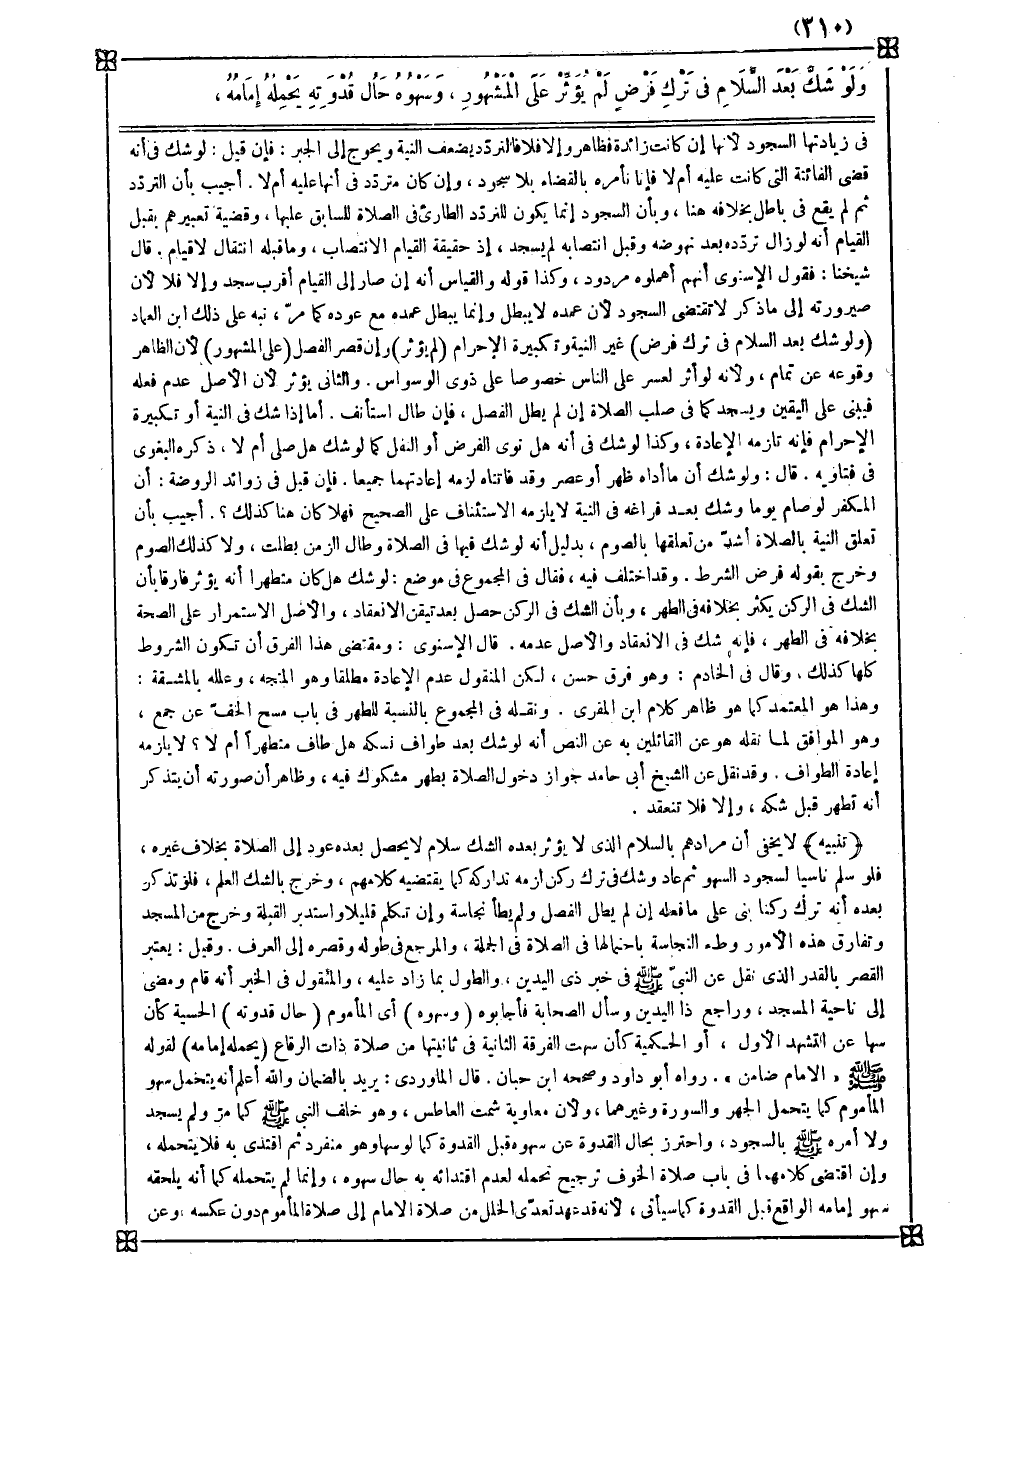 (٢١٠)
وَلَوْ شَكَّ بَعْدَ السَّلَامِ فِى تَرْكِ فَرْضٍ لَمْ يُؤَثِّرْ عَلَى الْمَشْهُورِ ، وَسَهْوُهُ حَالَ قُدْوَتِهِ يَحْمِلُهُ إِمَامُهُ ،
فى زيادتها السجود لأنها إن كانت زائدة فظاهر وإلا فلأن التردد يضعف النية ويحوج إلى الجبر : فإن قيل : لو شك فى أنه
قضى الفائتة التى كانت عليه أم لا فإنا نأمره بالقضاء بلا سجود ، وإن كان متردد فى أنها عليه أم لا . أجيب بأن التردد
ثم لم يقع فى باطل بخلافه هنا ، وبأن السجود إنما يكون للتردد الطارئ فى الصلاة للسابق عليها ، وقضية تعبيرهم بقبل
القيام أنه لو زال تردده بعد نهوضه وقبل انتصابه لم يسجد ، إذ حقيقة القيام الانتصاب ، وما قبله انتقال لا قيام . قال
شيخنا : فقول الإسنوى أنهم أهملوه مردود ، وكذا قوله والقياس أنه إن صار إلى القيام أقرب سجد وإلا فلا لأن
صيرورته إلى ماذكر لا تقتضى السجود لأن عمده لا يبطل وإنما يبطل عمده مع عوده كما مرّ ، نبه على ذلك ابن العماد
(ولو شك بعد السلام فى ترك فرض) غير النية وتكبيرة الإحرام (لم يؤثر) وإن قصر الفصل (على المشهور) لأن الظاهر
وقوعه عن تمام ، ولأنه لو أثر لعسر على الناس خصوصا على ذوى الوسواس . والثانى يؤثر لأن الأصل عدم فعله
فيبنى على اليقين ويسجد كما فى صلب الصلاة إن لم يطل الفصل ، فإن طال استأنف . أما إذا شك فى النية أو تكبيرة
الإحرام فإنه تلزمه الإعادة ، وكذا لو شك فى أنه هل نوى الفرض أو النفل كما لو شك هل صلى أم لا ، ذكره البغوى
فى فتاويه . قال : ولو شك أن ما أداه ظهر أو عصر وقد فاتتاه لزمه إعادتهما جميعا . فإن قيل فى زوائد الروضة : أن
المكفر لو صام يوما وشك بعد فراغه فى النية لا يلزمه الاستئناف على الصحيح فهلا كان هنا كذلك ؟ . أجيب بأن
تعلق النية بالصلاة أشدّ من تعلقها بالصوم ، بدليل أنه لو شك فيها فى الصلاة وطال الزمن بطلت ، ولا كذلك الصوم
وخرج بقوله فرض الشرط . وقد اختلف فيه ، فقال فى المجموع فى موضع : لو شك هل كان متطهرا أنه يؤثر فارقا بأن
الشك فى الركن يكثر بخلافه فى الطهر ، وبأن الشك فى الركن حصل بعد تيقن الانعقاد ، والأصل الاستمرار على الصحة
بخلافه فى الطهر ، فإنه شك فى الانعقاد والأصل عدمه . قال الإسنوى : ومقتضى هذا الفرق أن تكون الشروط
كلها كذلك . وقال فى الخادم : وهو فرق حسن ، لكن المنقول عدم الإعادة مطلقا وهو المتجه ، وعلله بالمشقة :
وهذا هو المعتمد كما هو ظاهر كلام ابن المقرى . ونقله فى المجموع بالنسبة للطهر فى باب مسح الخف عن جمع ،
وهو الموافق لما نقله هو عن القائلين به عن النص أنه لو شك بعد طواف نسكه هل طاف متطهراً أم لا ؟ لا يلزمه
إعادة الطواف . وقد نقل عن الشيخ أبى حامد جواز دخول الصلاة بطهر مشكوك فيه ، وظاهر أن صورته أن يتذكر
أنه تطهر قبل شكه ، وإلا فلا تنعقد .
﴿ تنبيه ﴾ لا يخفى أن مرادهم بالسلام الذى لا يؤثر بعده الشك سلام لا يحصل بعده عود إلى الصلاة بخلاف غيره ،
فلو سلم ناسيا لسجود السهو ثم عاد وشك فى ترك ركن لزمه تداركه كما يقتضيه كلامهم ، وخرج بالشك العلم ، فلو تذكر
بعده أنه ترك ركنا بنى على ما فعله إن لم يطل الفصل ولم يطأ نجاسة وإن تكلم قليلا واستدبر القبلة وخرج من المسجد
وتفارق هذه الأمور وطء النجاسة باحتمالها فى الصلاة فى الجملة ، والمرجع فى طوله وقصره إلى العرف . وقيل : يعتبر
القصر بالقدر الذى نقل عن النبىّ ﷺ فى خبر ذى اليدين ، والطول بما زاد عليه ، والمنقول فى الخبر أنه قام ومضى
إلى ناحية المسجد ، وراجع ذا اليدين وسأل الصحابة فأجابوه ( وسهوه ) أى المأموم ( حال قدوته ) الحسية كأن
سها عن التشهد الأول ، أو الحكمية كأن سهت الفرقة الثانية فى ثانيتها من صلاة ذات الرقاع (يحمله إمامه) لقوله
ﷺ « الامام ضامن » . رواه أبو داود وصححه ابن حبان . قال الماوردى : يريد بالضمان والله أعلم أنه يتحمل سهو
المأموم كما يتحمل الجهر والسورة وغيرهما ، ولأن معاوية شمت العاطس ، وهو خلف النبى ﷺ كما مرّ ولم يسجد
ولا أمره ﷺ بالسجود ، واحترز بحال القدوة عن سهوه قبل القدوة كما لو سها وهو منفرد ثم اقتدى به فلا يتحمله ،
وإن اقتضى كلامهما فى باب صلاة الخوف ترجيح تحمله لعدم اقتدائه به حال سهوه ، وإنما لم يتحمله كما أنه يلحقه
سهو إمامه الواقع قبل القدوة كما سيأتى ، لأنه قد عهد تعدّى الخلل من صلاة الامام إلى صلاة المأموم دون عكسه ، وعن